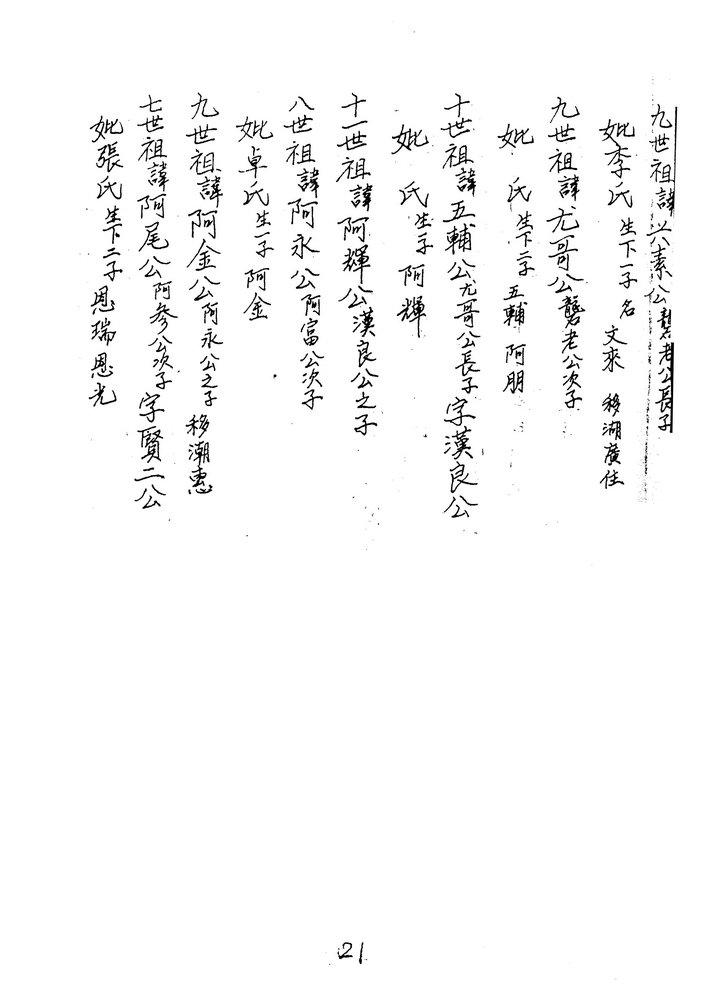 九世祖諱兴素公礱老公長子
妣李氏生下一子名文來 移湖廣住
九世祖諱尤哥公礱老公次子
妣 氏生下二子五輔 阿朋
十世祖諱五輔公尤哥公長子字漢良公
妣 氏生子阿輝
十一世祖諱阿輝公漢良公之子
八世祖諱阿永公阿富公次子
妣卓氏生一子阿金
九世祖諱阿金公阿永公之子移潮惠
七世祖諱阿尾公阿參公次子字賢二公
妣張氏生下二子恩瑞恩光
21